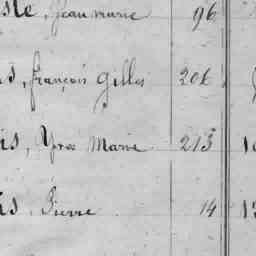 sle, Jean marie 96
is, françois gilles 206
is, Yves Marie 213
is, Pierre 14